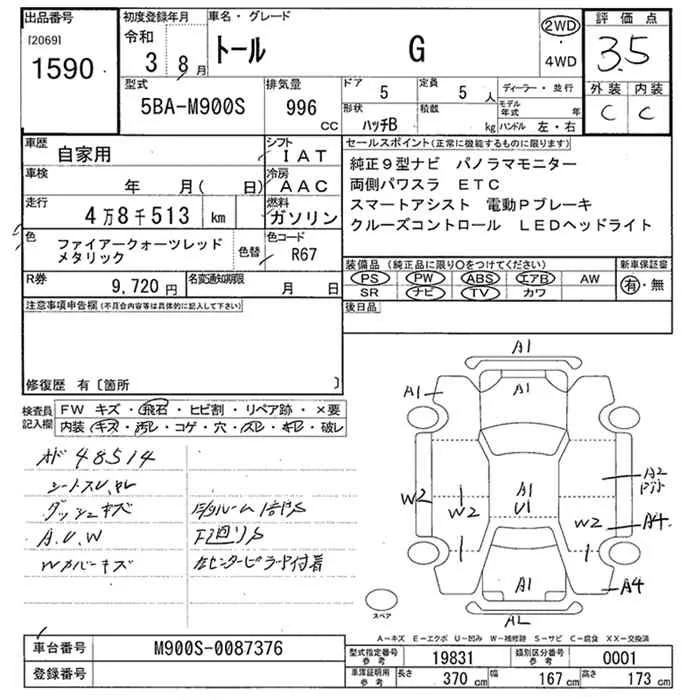 出品番号
[2069]
1590
初度登録年月
令和
3 8月
車名・グレード
トール G
2WD
・
4WD
評価点
3.5
外装 内装
C C
型式
5BA-M900S
排気量
996
CC
ドア
5
定員
5 人
形状
ハッチB
積載
kg
ディーラー・並行
モデル
年式 年
ハンドル 左・右
車歴
自家用
シフト
IAT
車検
年 月( 日)
冷房
AAC
走行
4万8千513 km
燃料
ガソリン
色
ファイアークォーツレッド
メタリック
色替
色コード
R67
R券
9,720円
名変通知期限
月 日
セールスポイント(正常に機能するものに限ります)
純正9型ナビ パノラマモニター
両側パワスラ ETC
スマートアシスト 電動Pブレーキ
クルーズコントロール LEDヘッドライト
装備品(純正品に限り○をつけてください)
新車保証書
PS PW ABS エアB AW
SR ナビ TV カワ
有・無
後日品
注意事項申告欄(不具合内容等は具体的に記入して下さい)
修復歴 有〔箇所 〕
検査員
記入欄
FW キズ・飛石・ヒビ割・リペア跡・×要
内装・キズ・汚レ・コゲ・穴・スレ・キレ・破レ
48514
ダッシュキズ
A.U.W
Wカバーキズ
F廻りS
センターピラー付着
A1
A1
A1
A1
U1
W2
W2
A2
W2
A4
A1
A4
スペア
A-キズ E-エクボ U-凹み W-補修跡 S-サビ C-腐食 XX-交換済
車台番号
M900S-0087376
登録番号
型式指定番号
参考
19831
類別区分番号
参考
0001
車庫証明用
参考
長さ 370 cm
幅 167 cm
高さ 173 cm